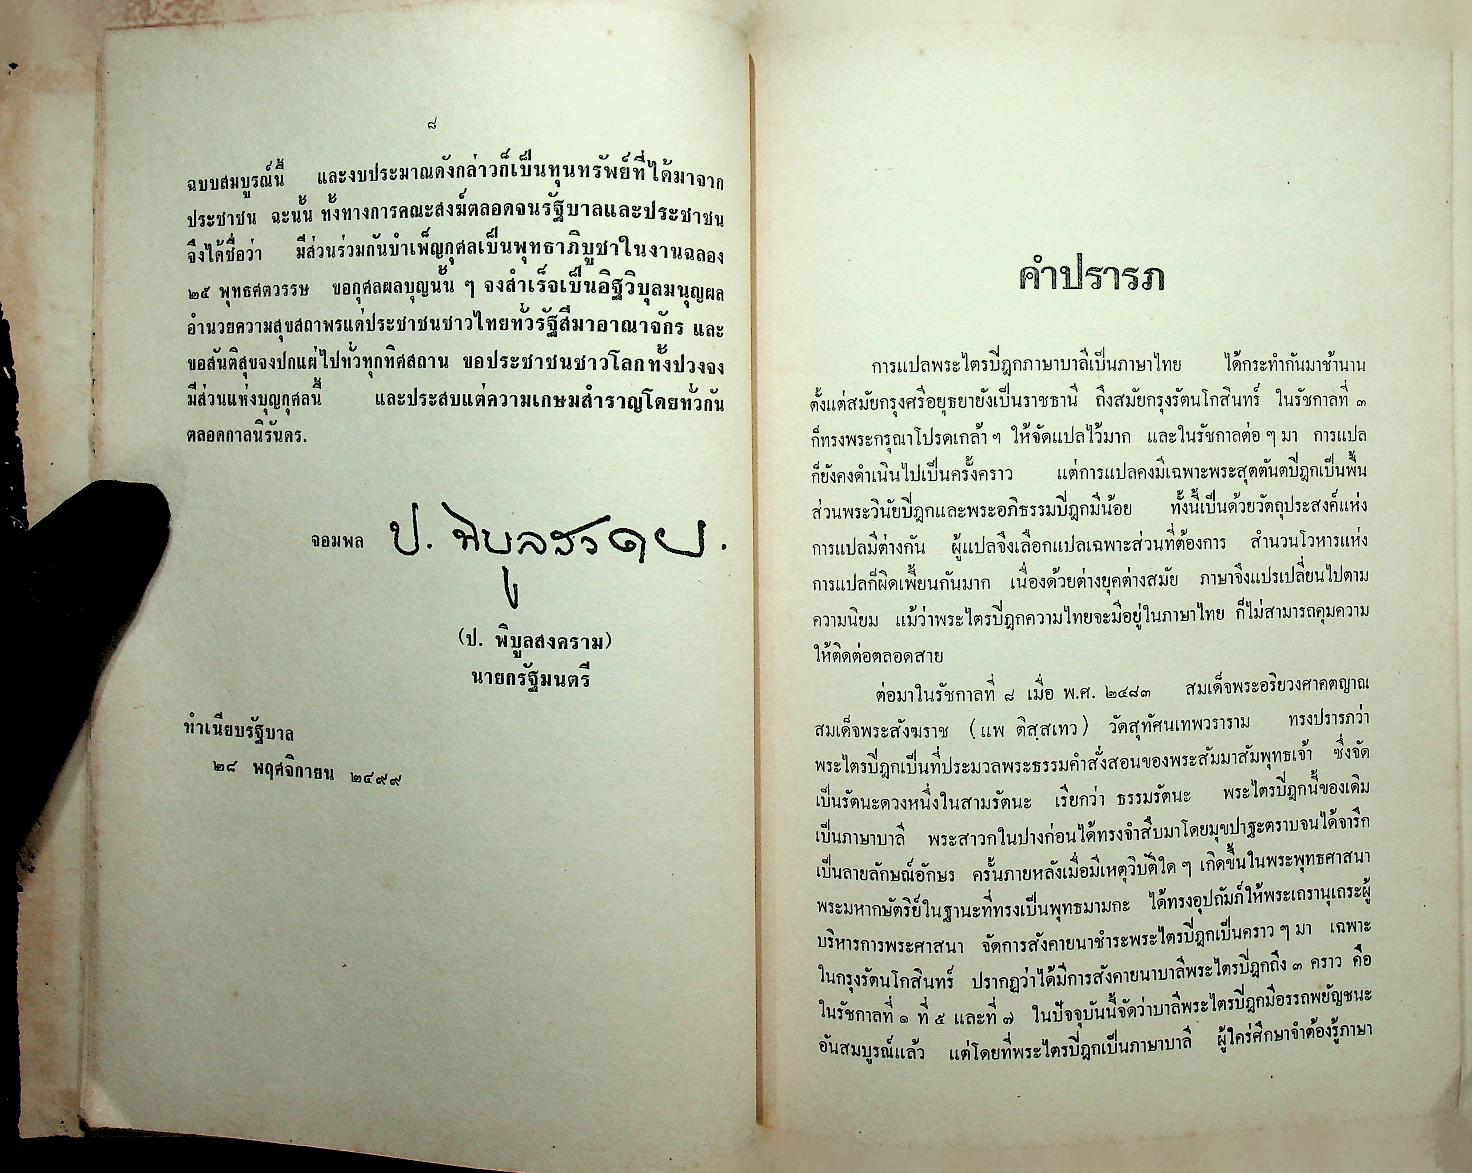 ๘
ฉบบสมบูรณ์นี้ และงบประมาณดังกล่าวก็เป็นทุนทรัพย์ที่ได้มาจาก
ประชาชน ฉะนั้น ทั้งทางการคณะสงฆ์ตลอดจนรัฐบาลและประชาชน
จึงได้ชื่อว่า มีส่วนร่วมกันบำเพ็ญกุศลเป็นพุทธาภิบูชาในงานฉลอง
๒๕ พุทธศตวรรษ ขอกุศลผลบุญนั้น ๆ จงสำเร็จเป็นอิฐวิบุลมนุญผล
อำนวยความสุขสถาพรแด่ประชาชนชาวไทยทั่วรัฐสีมาอาณาจักร และ
ขอสันติสุขจงปกแผ่ไปทั่วทุกทิศสถาน ขอประชาชนชาวโลกทั้งปวงจง
มีส่วนแห่งบุญกุศลนี้ และประสบแต่ความเกษมสำราญโดยทั่วกัน
ตลอดกาลนิรันดร.
จอมพล ป. พิบูลสงคราม.
(ป. พิบูลสงคราม)
นายกรัฐมนตรี
ทำเนียบรัฐบาล
๒๘ พฤศจิกายน ๒๔๙๙
คำปรารภ
การแปลพระไตรปิฎกภาษาบาลีเป็นภาษาไทย ได้กระทำกันมาช้านาน
ตั้งแต่สมัยกรุงศรีอยุธยายังเป็นราชธานี ถึงสมัยกรุงรัตนโกสินทร์ ในรัชกาลที่ ๓
ก็ทรงพระกรุณาโปรดเกล้า ฯ ให้จัดแปลไว้มาก และในรัชกาลต่อ ๆ มา การแปล
ก็ยังคงดำเนินไปเป็นครั้งคราว แต่การแปลคงมีเฉพาะพระสุตตันตปิฎกเป็นพื้น
ส่วนพระวินัยปิฎกและพระอภิธรรมปิฎกมีน้อย ทั้งนี้เป็นด้วยวัตถุประสงค์แห่ง
การแปลมีต่างกัน ผู้แปลจึงเลือกแปลเฉพาะส่วนที่ต้องการ สำนวนโวหารแห่ง
การแปลก็ผิดเพี้ยนกันมาก เนื่องด้วยต่างยุคต่างสมัย ภาษาจึงแปรเปลี่ยนไปตาม
ความนิยม แม้ว่าพระไตรปิฎกความไทยจะมีอยู่ในภาษาไทย ก็ไม่สามารถคุมความ
ให้ติดต่อตลอดสาย
ต่อมาในรัชกาลที่ ๘ เมื่อ พ.ศ. ๒๔๘๓ สมเด็จพระอริยวงศาคตญาณ
สมเด็จพระสังฆราช (แพ ติสฺสเทว) วัดสุทัศนเทพวราราม ทรงปรารภว่า
พระไตรปิฎกเป็นที่ประมวลพระธรรมคำสั่งสอนของพระสัมมาสัมพุทธเจ้า ซึ่งจัด
เป็นรัตนะดวงหนึ่งในสามรัตนะ เรียกว่า ธรรมรัตนะ พระไตรปิฎกนี้ของเดิม
เป็นภาษาบาลี พระสาวกในปางก่อนได้ทรงจำสืบมาโดยมุขปาฐะตราบจนได้จารึก
เป็นลายลักษณ์อักษร ครั้นภายหลังเมื่อมีเหตุวิบัติใด ๆ เกิดขึ้นในพระพุทธศาสนา
พระมหากษัตริย์ในฐานะที่ทรงเป็นพุทธมามกะ ได้ทรงอุปถัมภ์ให้พระเถรานุเถระผู้
บริหารการพระศาสนา จัดการสังคายนาชำระพระไตรปิฎกเป็นคราว ๆ มา เฉพาะ
ในกรุงรัตนโกสินทร์ ปรากฏว่าได้มีการสังคายนาบาลีพระไตรปิฎกถึง ๓ คราว คือ
ในรัชกาลที่ ๑ ที่ ๕ และที่ ๗ ในปัจจุบันนี้จัดว่าบาลีพระไตรปิฎกมีอรรถพยัญชนะ
อันสมบูรณ์แล้ว แต่โดยที่พระไตรปิฎกเป็นภาษาบาลี ผู้ใคร่ศึกษาจำต้องรู้ภาษา